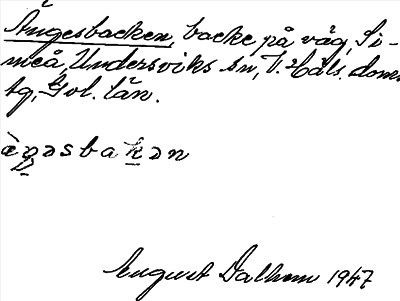 Ängesbacken, backe på väg, Si-
meå, Undersviks sn, V. Häls. doms.
tg, Gvl. län.
àŋəsbakən
August Dalhem 1947